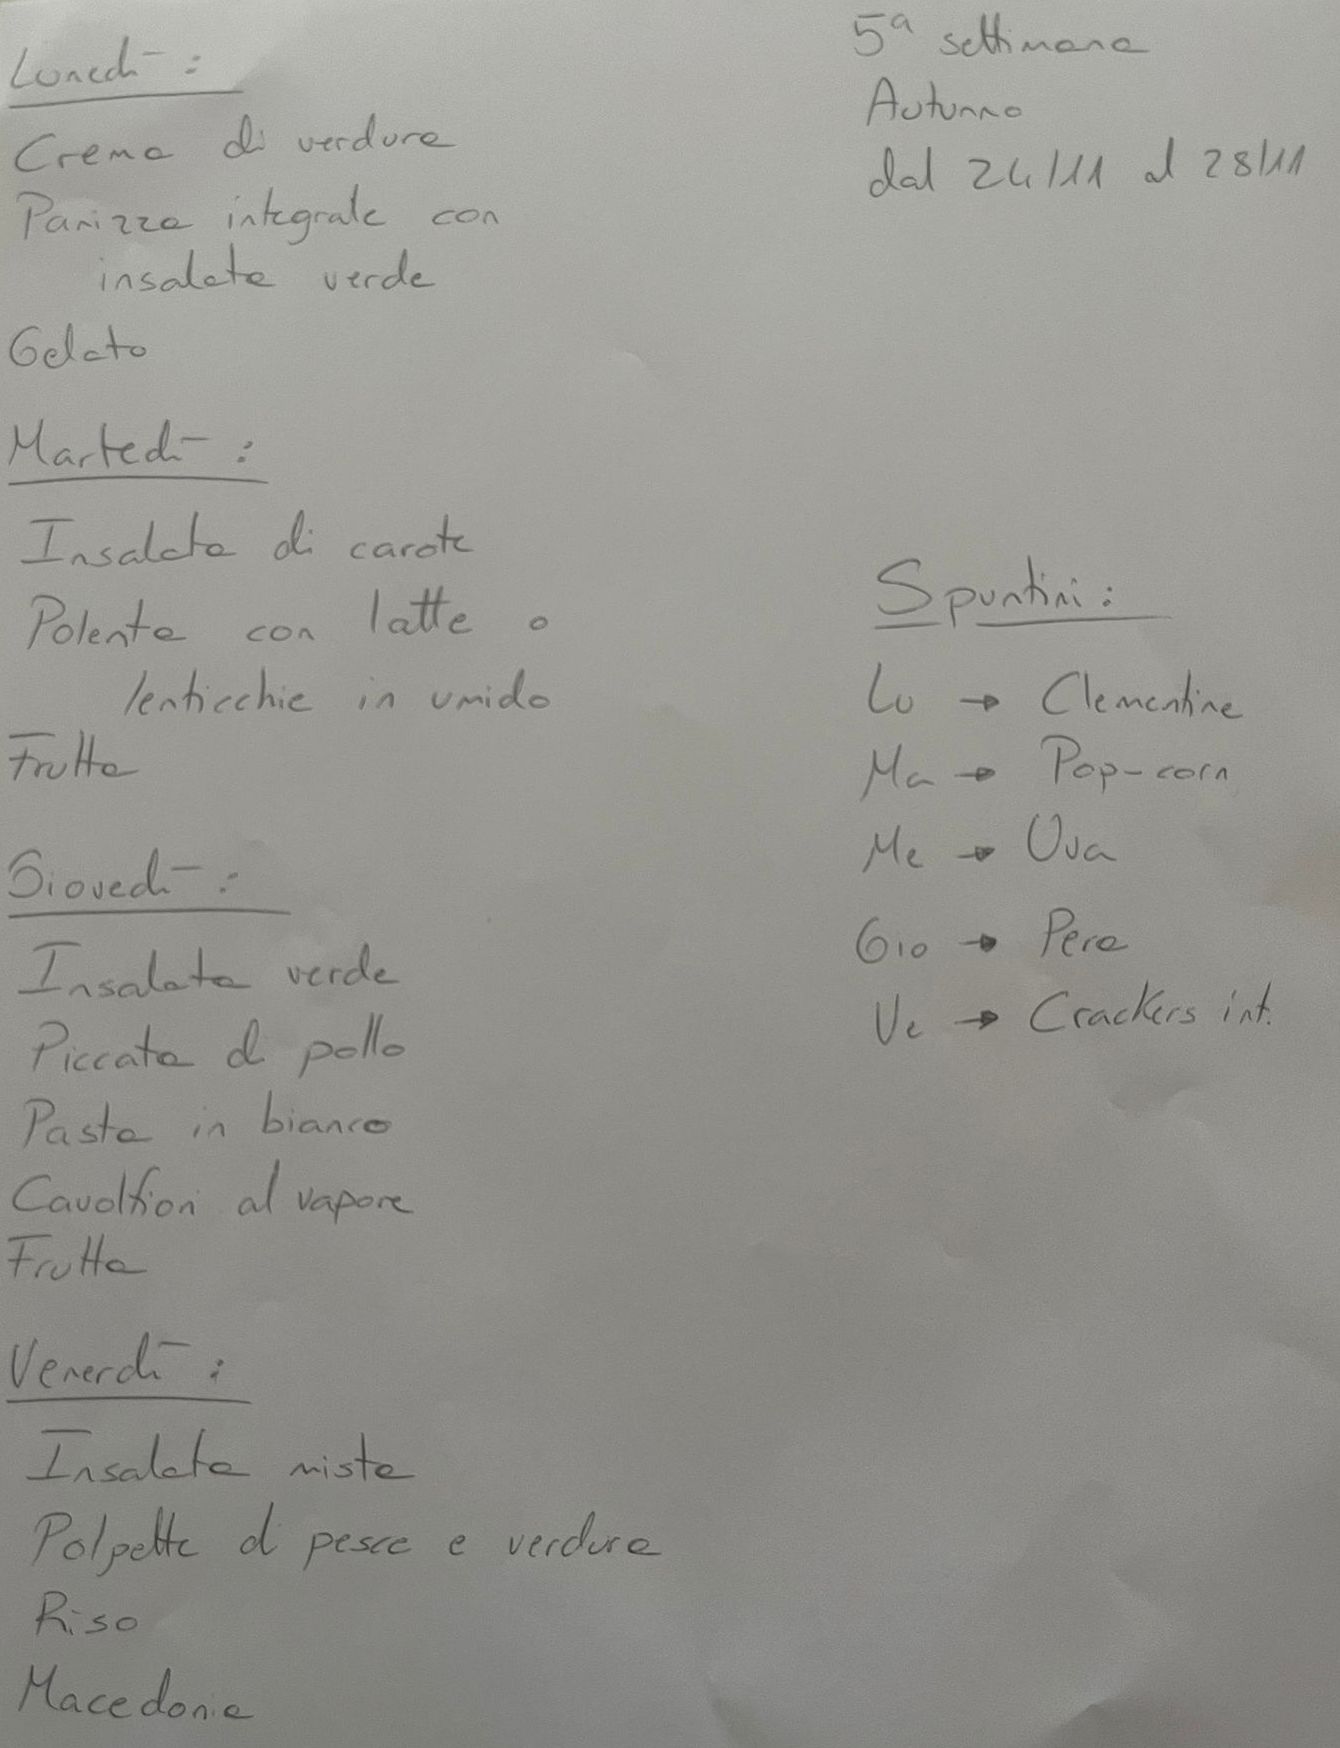 5ª settimana
Autunno
dal 24/11 al 28/11
Lunedì:
Crema di verdura
Panizza integrale con
insalata verde
Gelato
Martedì:
Insalata di carote
Polenta con latte o
lenticchie in umido
Frutta
Giovedì:
Insalata verde
Piccata di pollo
Pasta in bianco
Cavolfiori al vapore
Frutta
Venerdì:
Insalata mista
Polpette di pesce e verdura
Riso
Macedonia
Spuntini:
Lu → Clementine
Ma → Pop-corn
Me → Uva
Gio → Pera
Ve → Crackers int.